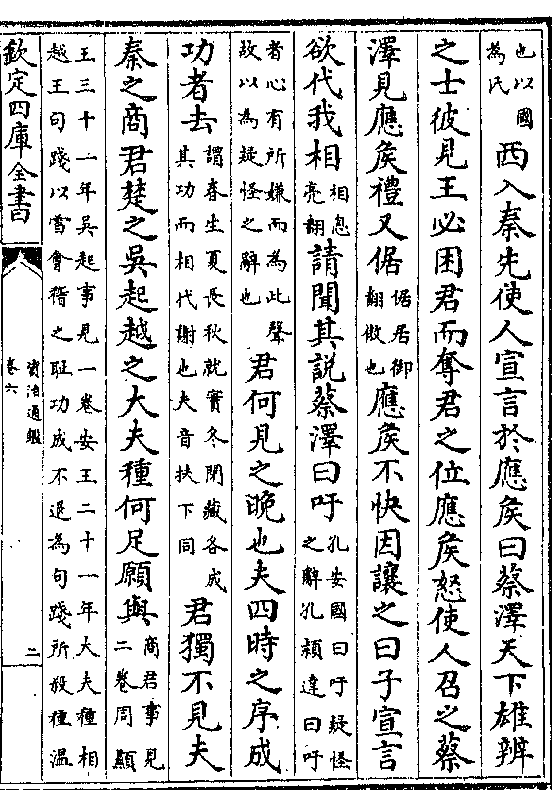 也以國為氏西入秦先使人宣言於應侯曰蔡澤天下雄辨
之士彼見王必困君而奪君之位應侯怒使人召之蔡
澤見應侯禮又倨倨居御翻傲也應侯不快因讓之曰子宣言
欲代我相相息亮翻請聞其說蔡澤曰吁孔安國曰吁疑怪之辭孔穎達曰吁
者心有所嫌而為此聲故以為疑怪之辭也君何見之晚也夫四時之序成
功者去謂春生夏長秋就實冬閉藏各成其功而相代謝也夫音扶下同君獨不見夫
秦之商君楚之吳起越之大夫種何足願與商君事見二卷周顯
王三十一年吳起事見一卷安王二十一年大夫種相越王句踐以雪會稽之耻功成不退為句踐所殺種溫
欽定四庫全書
資治通鑑
卷六
二